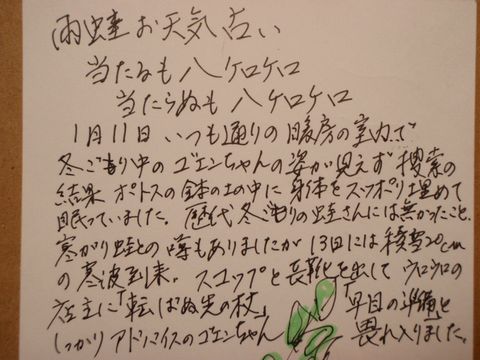 雨蛙お天気占い
当たるも八ケロケロ
当たらぬも八ケロケロ
1月11日いつも通りの暖房の室内で
冬ごもり中のゴエンちゃんの姿が見えず捜索の
結果ポトスの鉢の土の中に身体をスッポリ埋めて
眠っていました。歴代冬ごもりの蛙さんには無かったこと。
寒がり蛙との噂もありましたが13日には積雪20cm
の寒波到来。スコップと長靴を出してウロウロの
店主に「転ばぬ先の杖」「早目の準備」と
しっかりアドバイスのゴエンちゃん 畏れ入りました。